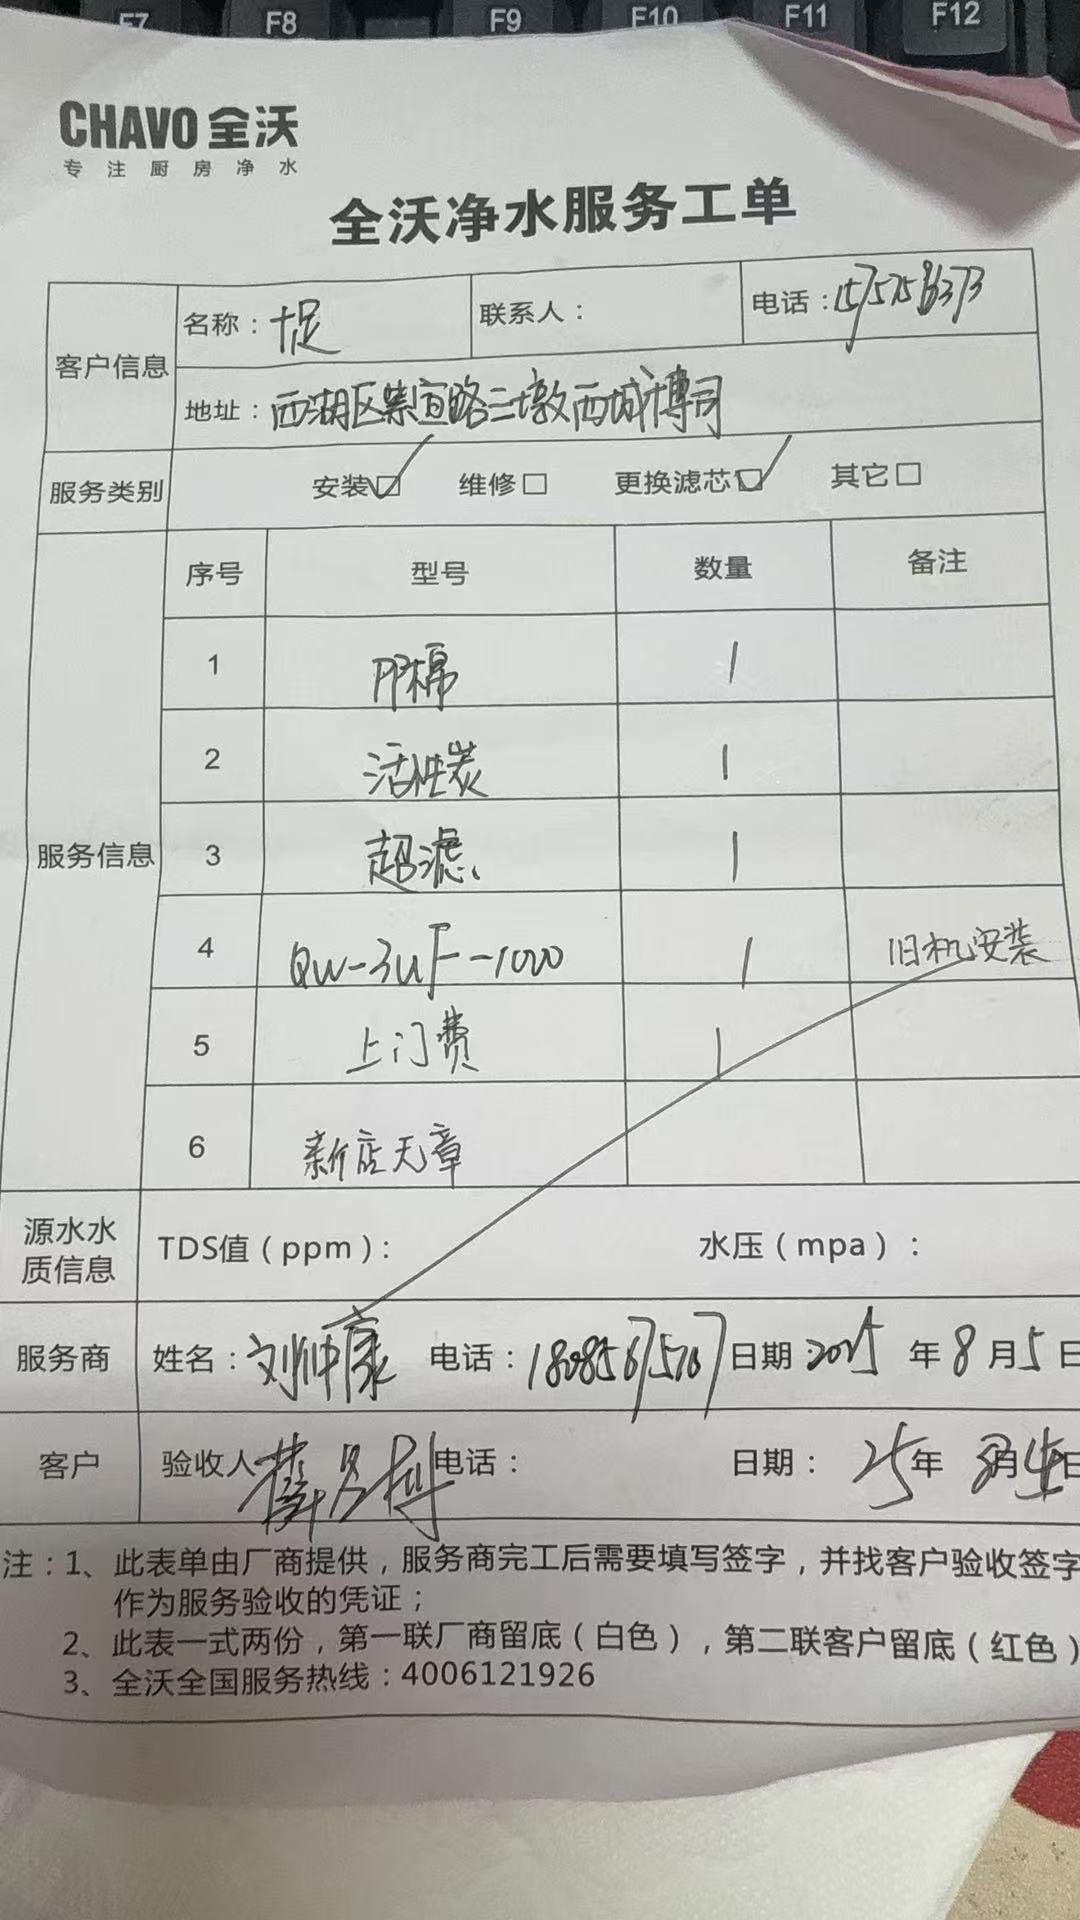 F7 F8 F9 F10 F11 F12
CHAVO 全沃
专注厨房净水
全沃净水服务工单
客户信息
名称： 联系人： 电话：
地址：西湖区紫宣路三墩西城博司
服务类别 安装☑ 维修□ 更换滤芯☑ 其它□
服务信息
序号 型号 数量 备注
1 PP棉 1
2 活性炭 1
3 超滤 1
4 QW-3UF-1000 1 旧机安装
5 上门费 1
6 新店无章
源水水质信息 TDS值（ppm）： 水压（mpa）：
服务商 姓名：刘帅康 电话：18085675107 日期 2025 年 8 月 5 日
客户 验收人 电话： 日期： 25年 8月 日
注：1、此表单由厂商提供，服务商完工后需要填写签字，并找客户验收签字
作为服务验收的凭证；
2、此表一式两份，第一联厂商留底（白色），第二联客户留底（红色）
3、全沃全国服务热线：4006121926